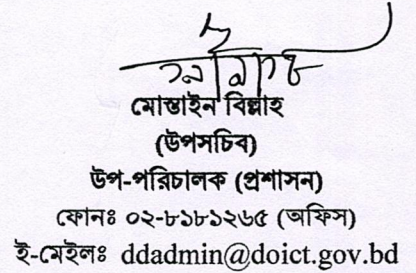 মোস্তাইন বিল্লাহ
(উপসচিব)
উপ-পরিচালক (প্রশাসন)
ফোনঃ ০২-৮১৮১২৬৫ (অফিস)
ই-মেইলঃ ddadmin@doict.gov.bd